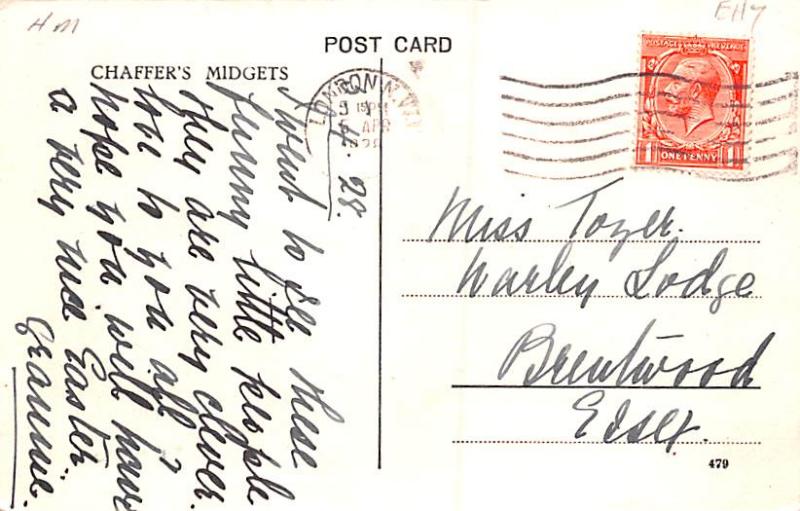 HM
EH7
POST CARD
CHAFFER'S MIDGETS
LONDON N.W.
5 APR
28.
I went to see these
funny little people
they are very clever.
love to you all
hope you will have
a very nice Easter
Grannie.
POSTAGE REVENUE
1 ONE PENNY 1
Miss Tozer.
Warley Lodge
Brentwood
Essex.
479